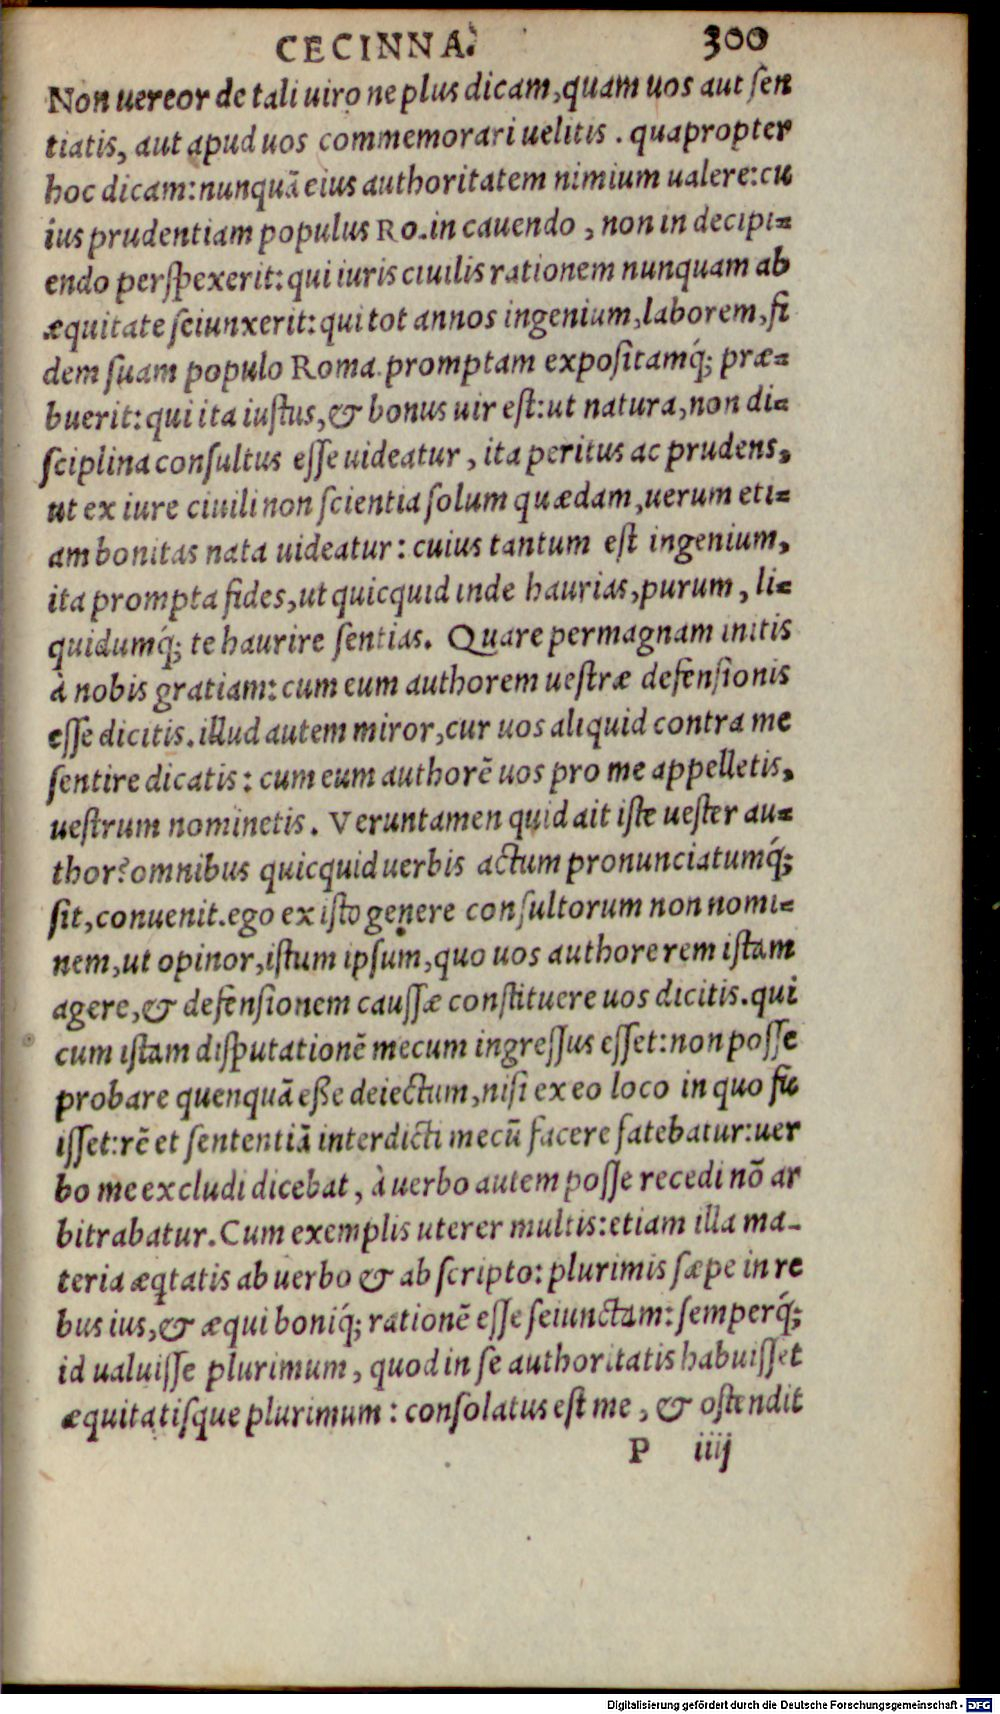 CECINNA. 300
Non uereor de tali uiro ne plus dicam,quam uos aut ſen
tiatis, aut apud uos commemorari uelitis . quapropter
hoc dicam:nunquā eius authoritatem nimium ualere:cu
ius prudentiam populus Ro.in cauendo , non in decipi=
endo perſpexerit:qui iuris ciuilis rationem nunquam ab
æquitate ſeiunxerit:qui tot annos ingenium,laborem,fi
dem ſuam populo Roma.promptam expoſitamq́; præ=
buerit:qui ita iuſtus,& bonus uir eſt:ut natura,non di=
ſciplina conſultus eſſe uideatur , ita peritus ac prudens,
ut ex iure ciuili non ſcientia ſolum quædam,uerum eti=
am bonitas nata uideatur : cuius tantum eſt ingenium,
ita prompta fides,ut quicquid inde haurias,purum , li=
quidumq́; te haurire ſentias. Quare permagnam initis
à nobis gratiam:cum eum authorem ueſtræ defenſionis
eſſe dicitis.illud autem miror,cur uos aliquid contra me
ſentire dicatis : cum eum authorē uos pro me appelletis,
ueſtrum nominetis. Veruntamen quid ait iſte ueſter au=
thor?omnibus quicquid uerbis actum pronunciatumq́;
ſit,conuenit.ego ex iſto genere conſultorum non nomi=
nem,ut opinor,iſtum ipſum,quo uos authore rem iſtam
agere,& defenſionem cauſſæ conſtituere uos dicitis.qui
cum iſtam diſputationē mecum ingreſſus eſſet:non poſſe
probare quenquā eße deiectum,niſi ex eo loco in quo fu
iſſet:rē et ſententiā interdicti mecū facere fatebatur:uer
bo me excludi dicebat , à uerbo autem poſſe recedi nō ar
bitrabatur. Cum exemplis uterer multis:etiam illa ma-
teria æqtatis ab uerbo & ab ſcripto: plurimis ſæpe in re
bus ius,& æqui boniq́; rationē eſſe ſeiunctam:ſemperq́;
id ualuiſſe plurimum , quod in ſe authoritatis habuiſſet
æquitatiſque plurimum : conſolatus eſt me , & oſtendit
P iiij
Digitalisierung gefördert durch die Deutsche Forschungsgemeinschaft - DFG